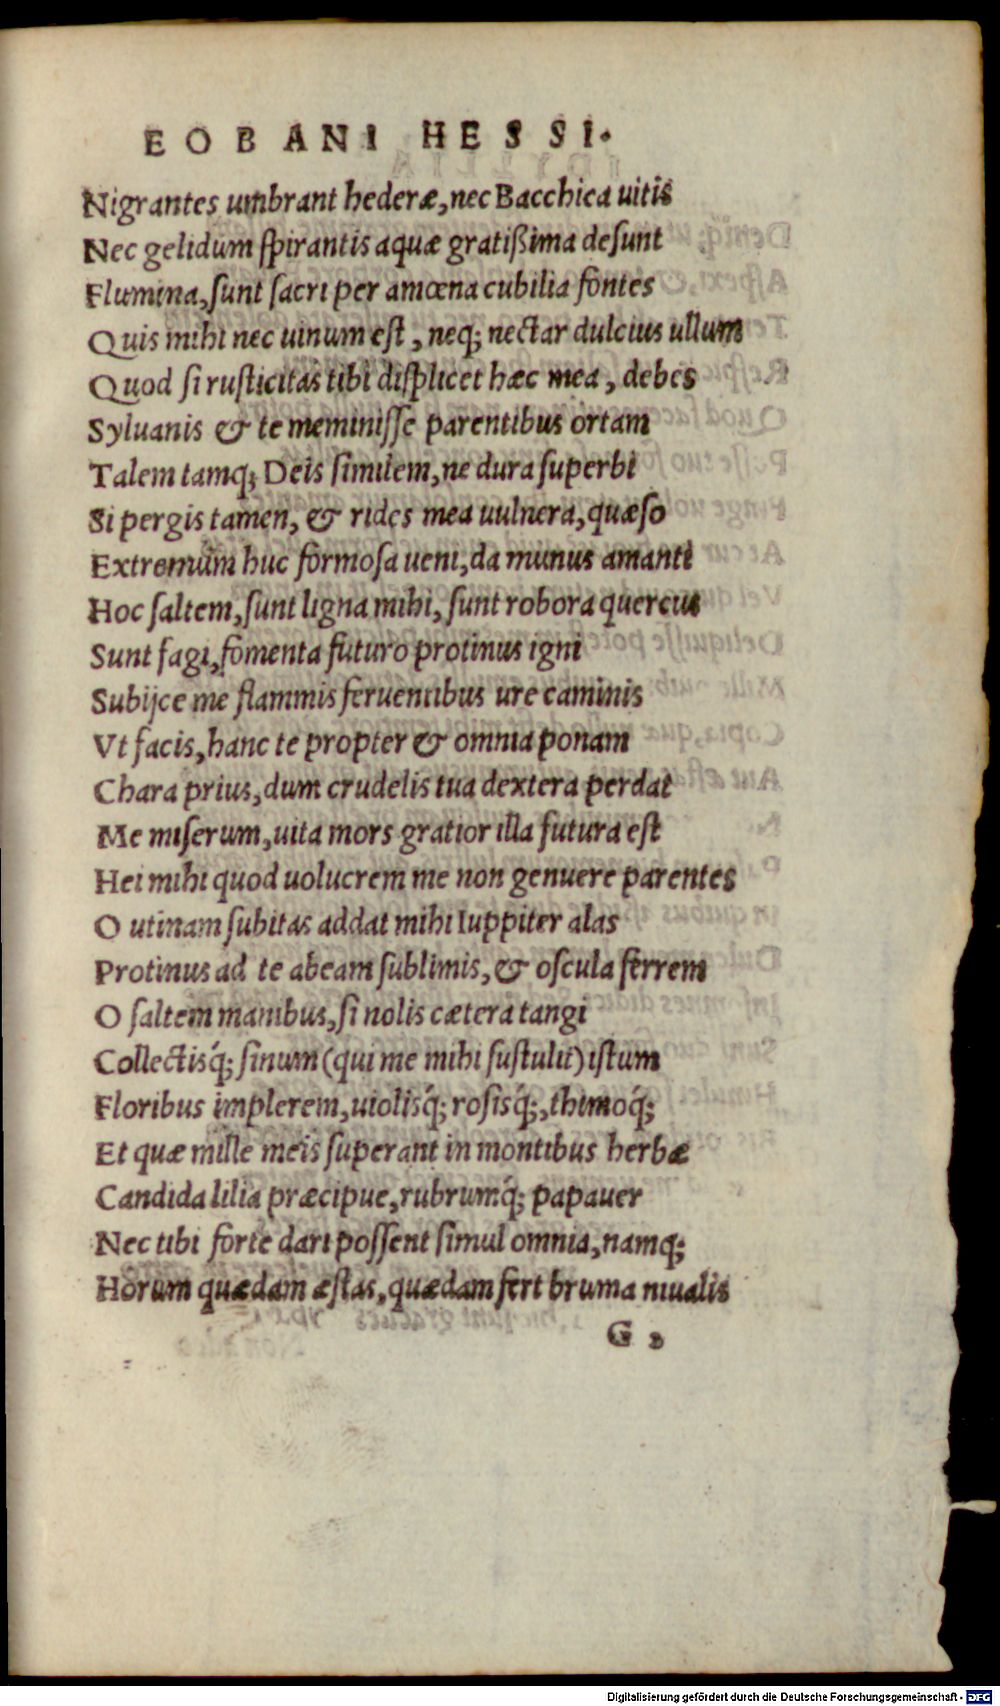 EOBANI HESSI.
Nigrantes umbrant hederæ, nec Bacchica uitis
Nec gelidum spirantis aquæ gratißima desunt
Flumina, sunt sacri per amœna cubilia fontes
Quis mihi nec uinum est, neq; nectar dulcius ullum
Quod si rusticitas tibi displicet hæc mea, debes
Syluanis & te meminisse parentibus ortam
Talem tamq; Deis similem, ne dura superbi
Si pergis tamen, & rides mea uulnera, quæso
Extremum huc formosa ueni, da munus amanti
Hoc saltem, sunt ligna mihi, sunt robora quercus
Sunt fagi, fomenta futuro protinus igni
Subijce me flammis feruentibus ure caminis
Vt facis, hanc te propter & omnia ponam
Chara prius, dum crudelis tua dextera perdat
Me miserum, uita mors gratior illa futura est
Hei mihi quod uolucrem me non genuere parentes
O utinam subitas addat mihi Iuppiter alas
Protinus ad te abeam sublimis, & oscula ferrem
O saltem manibus, si nolis cætera tangi
Collectisq́; sinum (qui me mihi sustulit) istum
Floribus implerem, uiolisq́; rosisq́;, thimoq́;
Et quæ mille meis superant in montibus herbæ
Candida lilia præcipue, rubrumq́; papauer
Nec tibi forte dari possent simul omnia, namq;
Horum quædam æstas, quædam fert bruma niualis
G 2
Digitalisierung gefördert durch die Deutsche Forschungsgemeinschaft - DFG